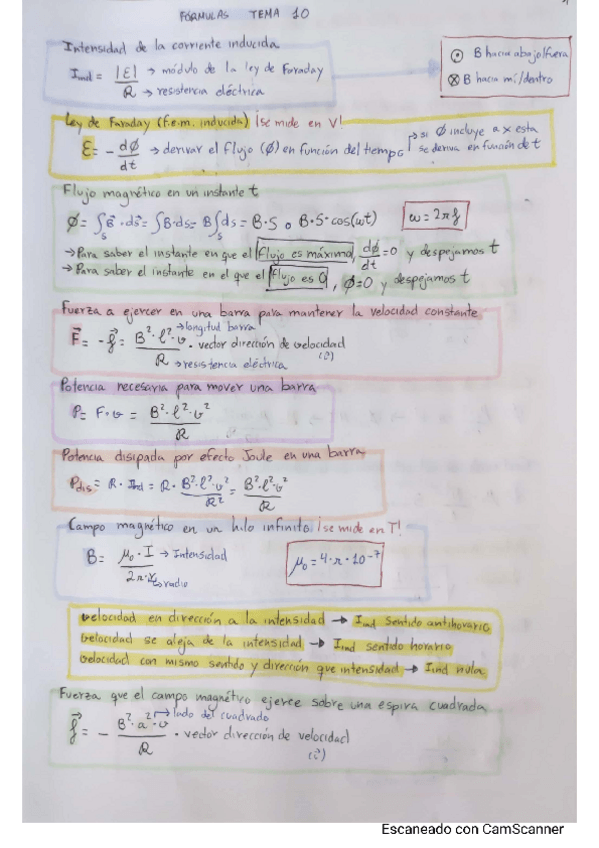 FÓRMULAS TEMA 10
Intensidad de la corriente inducida
I_ind = |Ɛ| / R → módulo de la ley de Faraday
→ resistencia eléctrica
⊙ B hacia abajo/fuera
⊗ B hacia mí/dentro
Ley de Faraday (f.e.m. inducida) ¡se mide en V!
Ɛ = - dø/dt → derivar el flujo (ø) en función del tiempo
→ si ø incluye a x esta
se deriva en función de t
Flujo magnético en un instante t
ø = ∫_S B⃗ · ds⃗ = ∫ B·ds = B ∫_S ds = B·S o B·S·cos(ωt)
ω = 2πf
→ Para saber el instante en que el flujo es máximo, dø/dt = 0 y despejamos t
→ Para saber el instante en el que el flujo es 0, ø = 0 y despejamos t
Fuerza a ejercer en una barra para mantener la velocidad constante
F⃗ = -f⃗ = B²·l²·v / R · vector dirección de velocidad
→ longitud barra
→ resistencia eléctrica
Potencia necesaria para mover una barra
P = F·v = B²·l²·v² / R
Potencia disipada por efecto Joule en una barra
P_dis = R·I_ind = R · B²·l²·v² / R² = B²·l²·v² / R
Campo magnético en un hilo infinito ¡se mide en T!
B = μ₀·I / 2π·r → Intensidad
→ radio
μ₀ = 4·π·10⁻⁷
velocidad en dirección a la intensidad → I_ind sentido antihorario
velocidad se aleja de la intensidad → I_ind sentido horario
velocidad con mismo sentido y dirección que intensidad → I_ind nula
Fuerza que el campo magnético ejerce sobre una espira cuadrada
f⃗ = - B²·a²·v / R · vector dirección de velocidad
→ lado del cuadrado
(i⃗)
Escaneado con CamScanner